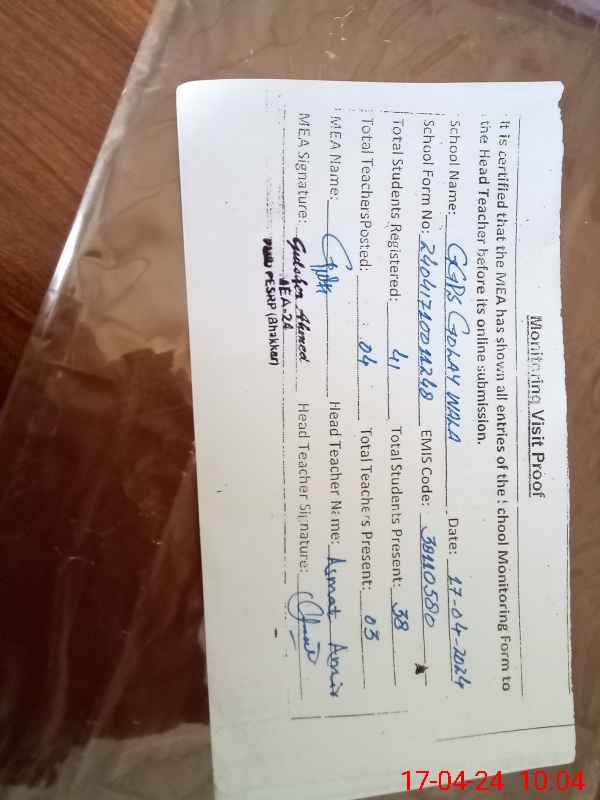 Monitoring Visit Proof
It is certified that the MEA has shown all entries of the School Monitoring Form to
the Head Teacher before its online submission.
School Name: GGPS GOLAY WALA Date: 17-04-2024
School Form No: 24041710011248 EMIS Code: 38110580
Total Students Registered: 41 Total Students Present: 38
Total TeachersPosted: 04 Total Teachers Present: 03
MEA Name: Head Teacher Name: Asmat Amir
MEA Signature: Gulsher Ahmed Head Teacher Signature:
MEA-24
PMIU PESRP (Bhakkar)
17-04-24 10:04